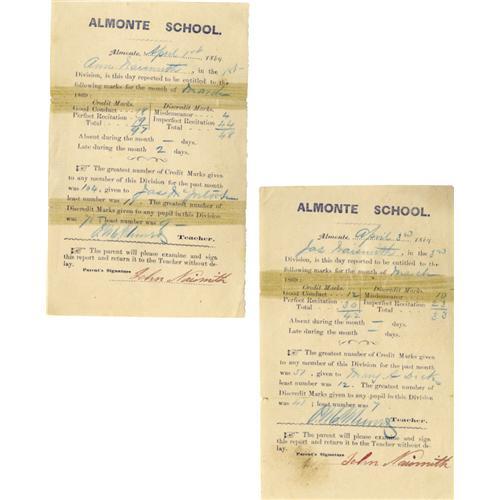 ALMONTE SCHOOL.
Almonte, April 1st 1869
Ann Naismith, in the 1st
Division, is this day reported to be entitled to the
following marks for the month of March
1869:
Credit Marks. Discredit Marks.
Good Conduct - 18 Misdemeanor - 4
Perfect Recitation 79 Imperfect Recitation 44
Total - - - 97 Total - - 48
Absent during the month — days.
Late during the month 2 days.
☞ The greatest number of Credit Marks given
to any member of this Division for the past month
was 104, given to Jas
The greatest number of
Discredit Marks given to any pupil in this Division
was least number was
Teacher.
☞ The parent will please examine and sign
this report and return it to the Teacher without de-
lay.
Parent's Signature
John Naismith
ALMONTE SCHOOL.
Almonte, April 3rd 1869
Jas Naismith, in the 3rd
Division, is this day reported to be entitled to the
following marks for the month of March
1869:
Credit Marks. Discredit Marks.
Good Conduct - 12 Misdemeanor - 10
Perfect Recitation 30 Imperfect Recitation 23
Total - - - 42 Total - - 33
Absent during the month — days.
Late during the month — days.
☞ The greatest number of Credit Marks given
to any member of this Division for the past month
was 51, given to Mary C Dick
least number was 12. The greatest number of
Discredit Marks given to any pupil in this Division
was 41; least number was 7
Teacher.
☞ The parent will please examine and sign
this report and return it to the Teacher without de-
lay.
Parent's Signature
John Naismith